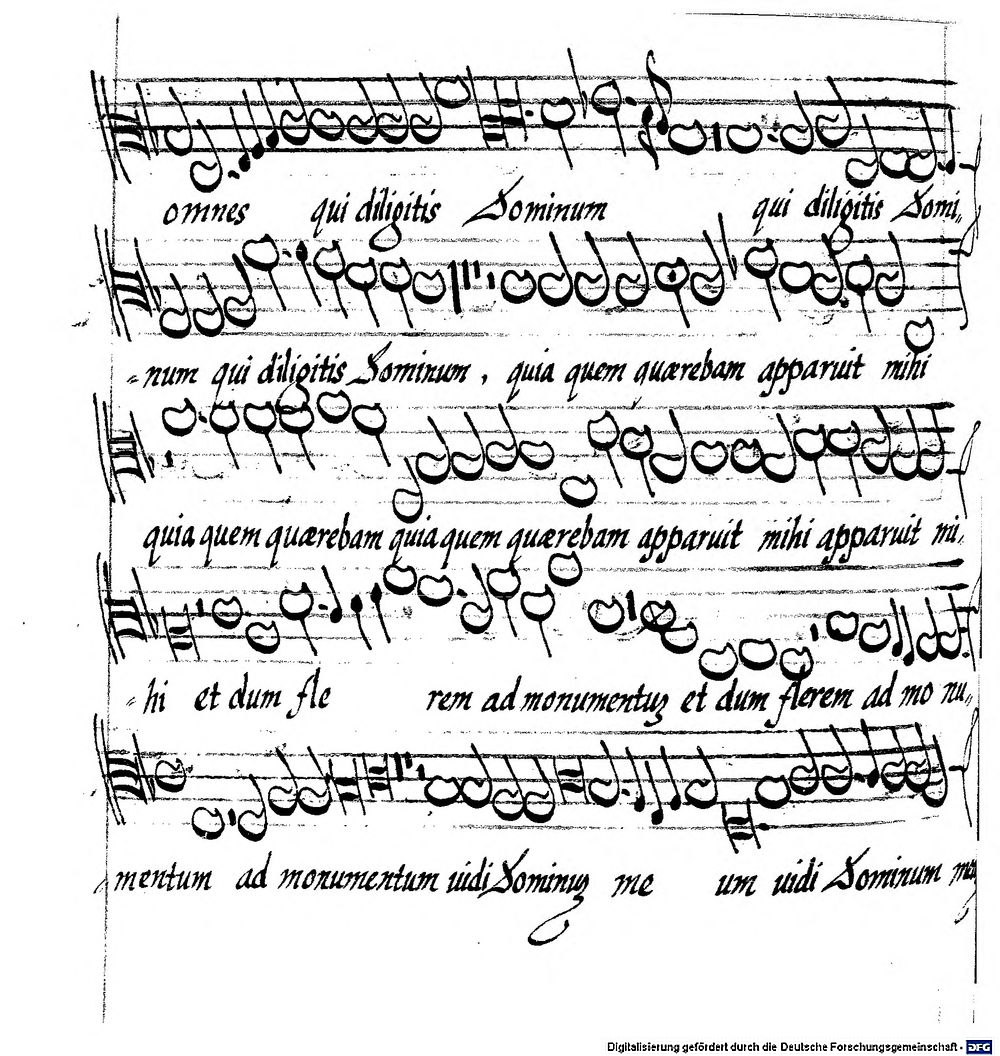 omnes qui diligitis Dominum qui diligitis Domi„
„num qui diligitis Dominum, quia quem quærebam apparuit mihi
quia quem quærebam quia quem quærebam apparuit mihi apparuit mi„
„hi et dum fle rem ad monumentuz et dum flerem ad mo nu„
mentum ad monumentum uidi Dominuz me um uidi Dominum
Digitalisierung gefördert durch die Deutsche Forschungsgemeinschaft - DFG